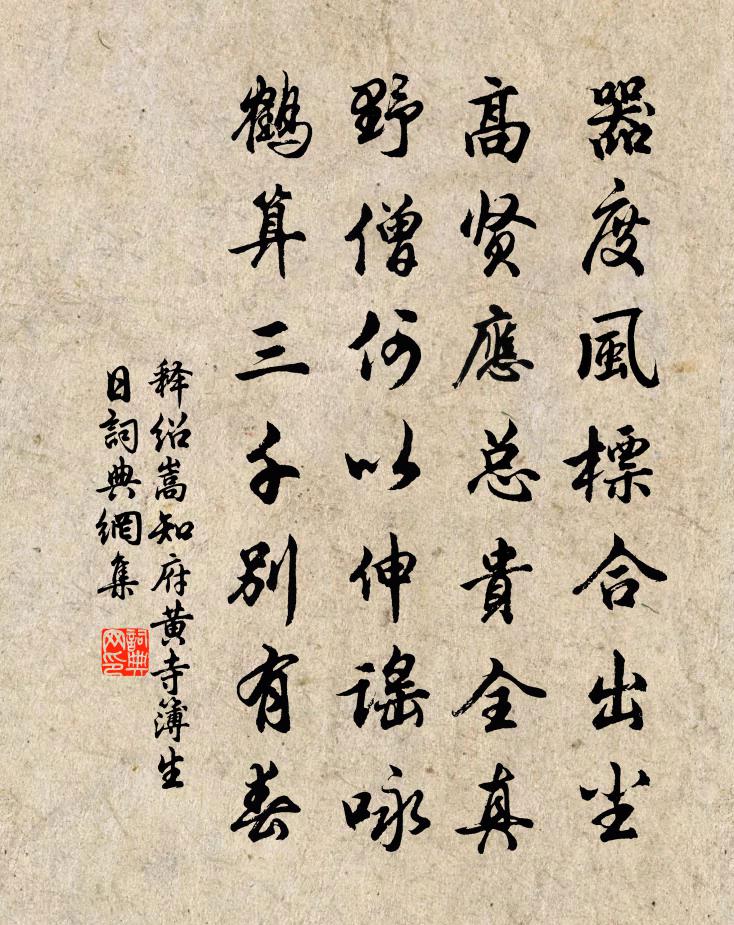 器度風標合出尘
高贤應总貴全真
野僧何以伸謠咏
鶴算三千別有春
释绍嵩知府黄寺簿生
日詞典網集
詞典
网印